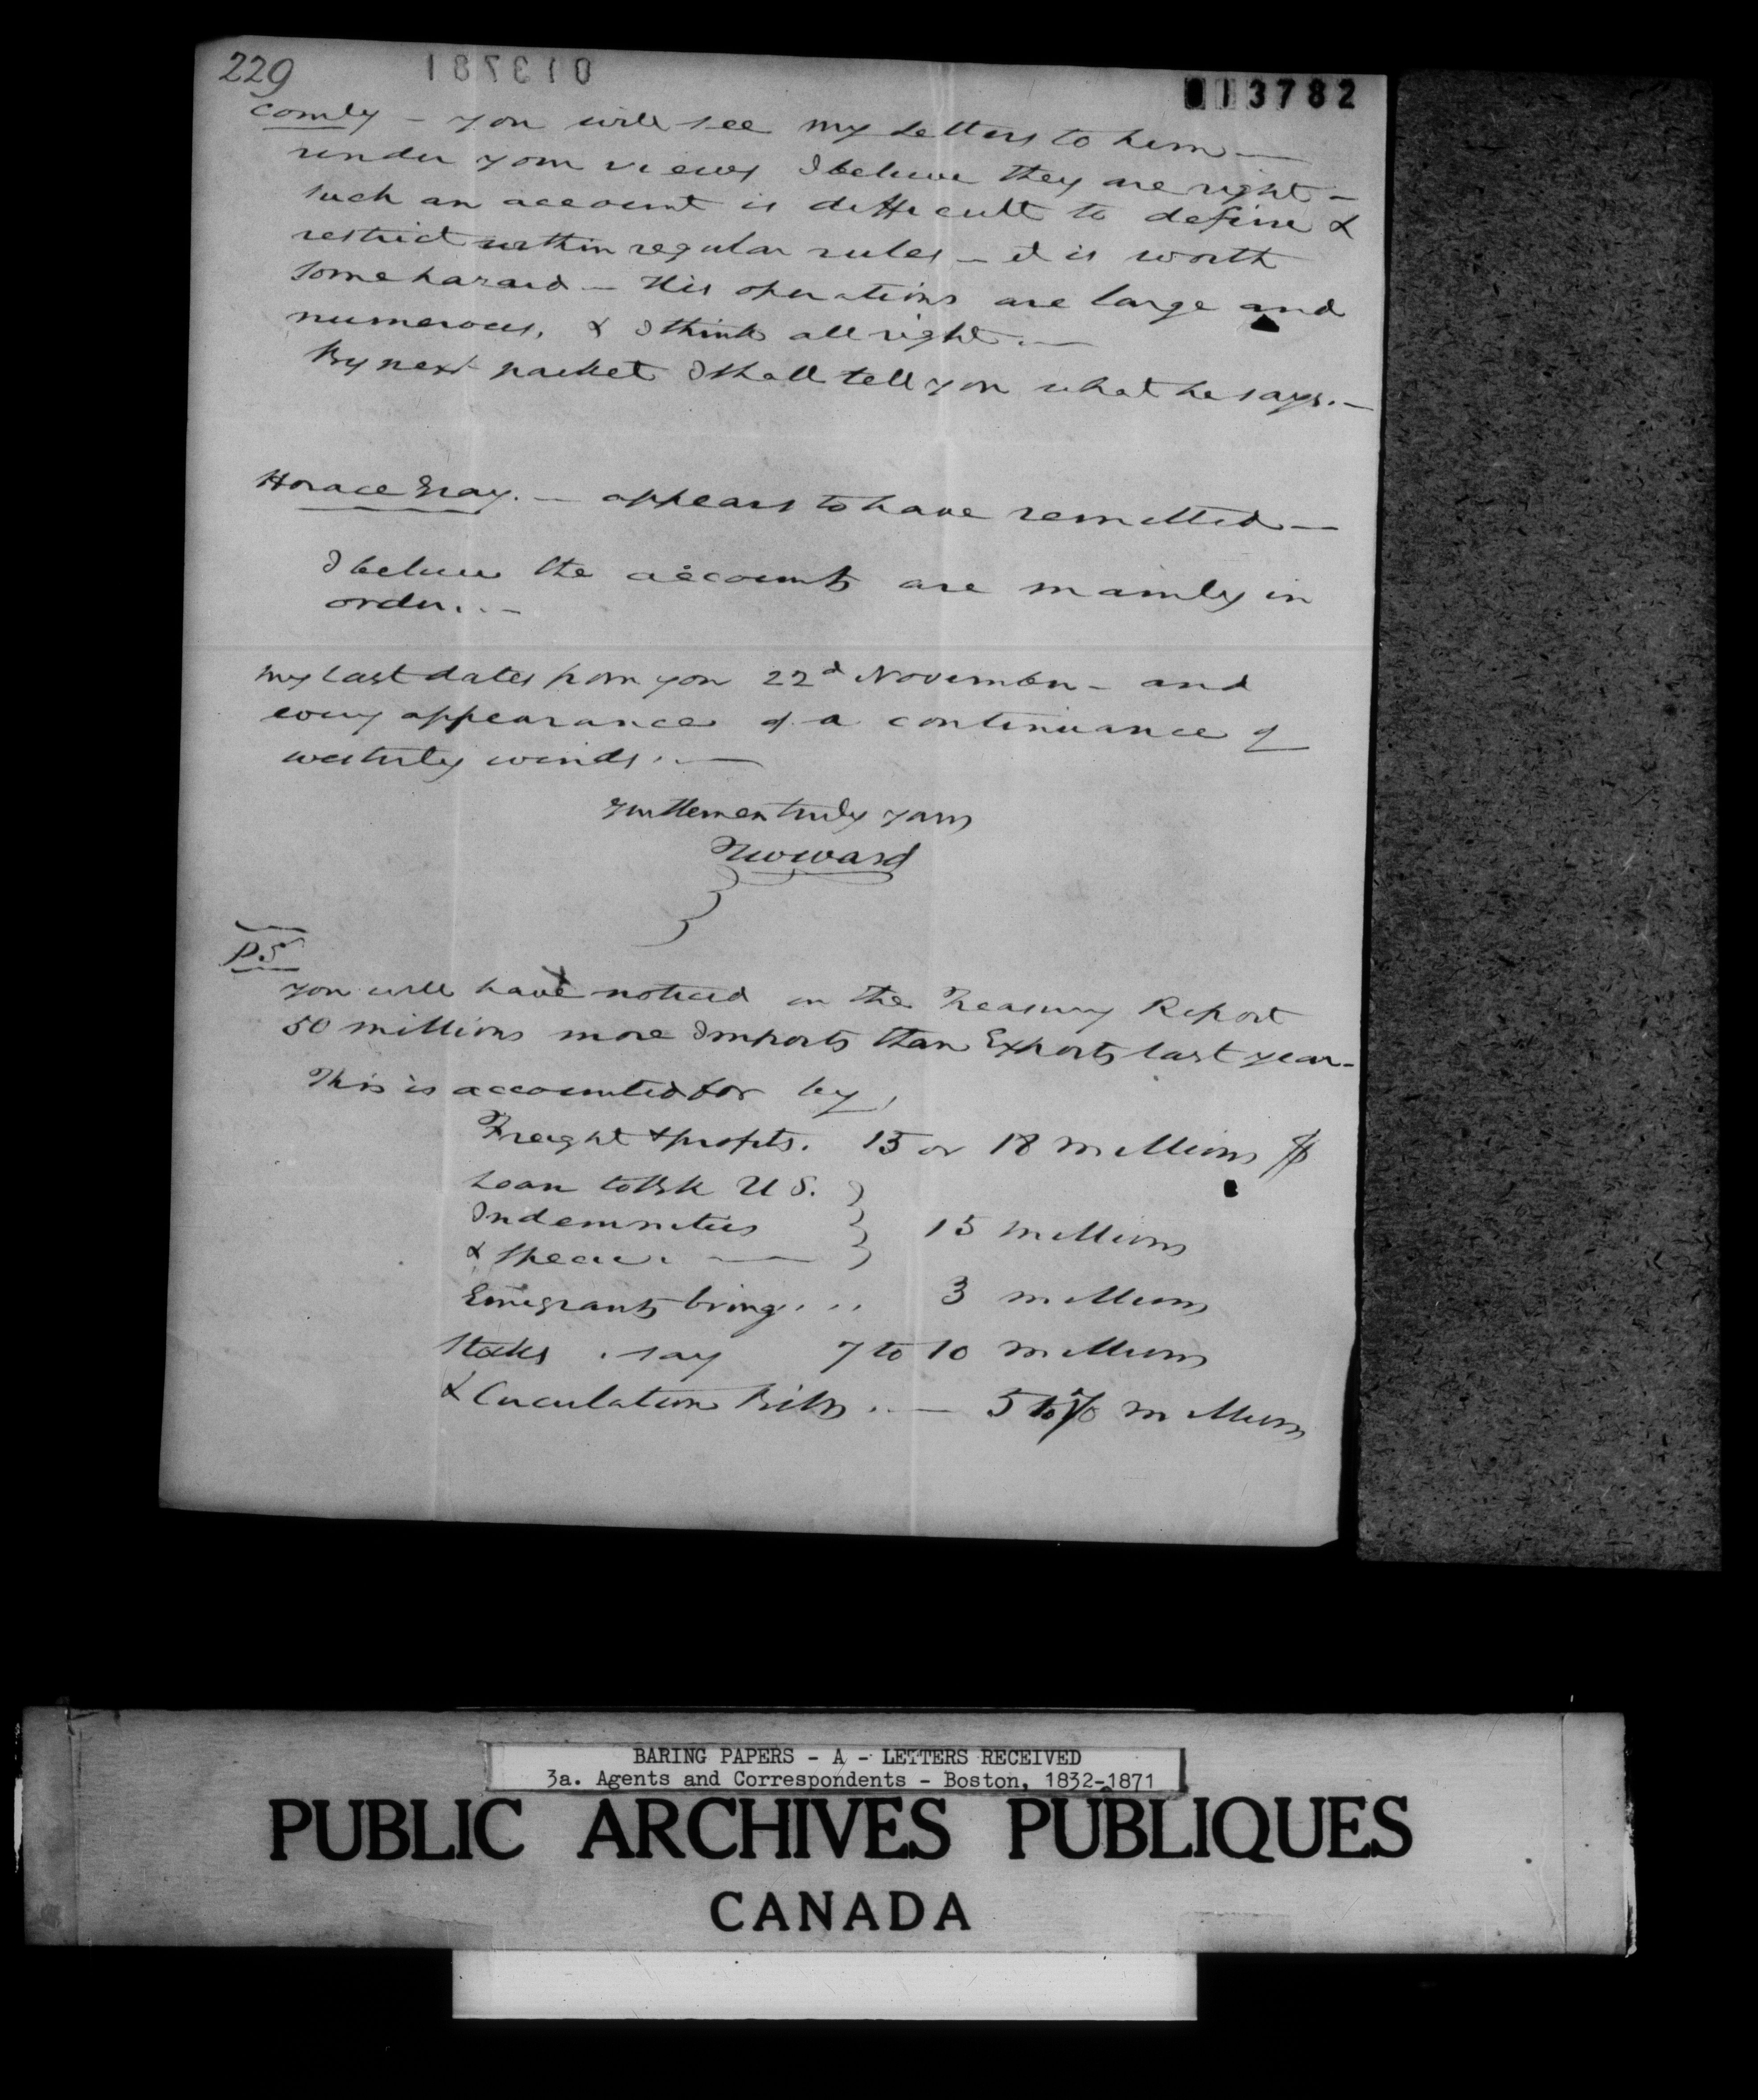 229
013781
013782
Comly - you will see my Letters to him —
under your views I believe they are right -
such an account is difficult to define &
restrict within regular rules - it is worth
some hazard - His operations are large and
numerous, & I think all right. —
By next packet I shall tell you what he says. -
Horace Gray. - appears to have remitted —
I believe the accounts are mainly in
order. . -
My last dates from you 22d November - and
every appearance of a continuance of
westerly winds. —
Gentlemen truly yours
TWWard
PS
You will have noticed in the Treasury Report
50 millions more Imports than Exports last year -
This is accounted for by,
Freight & profits. 15 or 18 millions $
Loan to Bk U S.
Indemnities
& Specie. — 15 millions
Emigrants bring . . . 3 millions
Stocks . say 7 to 10 millions
& Circulation Bills . — 5 to millions
BARING PAPERS - A - LETTERS RECEIVED
3a. Agents and Correspondents - Boston, 1832-1871
PUBLIC ARCHIVES PUBLIQUES
CANADA